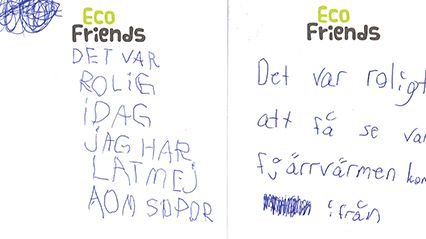 Eco
Friends
DET VAR
ROLIG
iDAG
JAG HAR
LATMEJ
AOM SOPOR
Eco
Friends
Det var roligt
att få se var
fjärrvärmen kom
ifrån